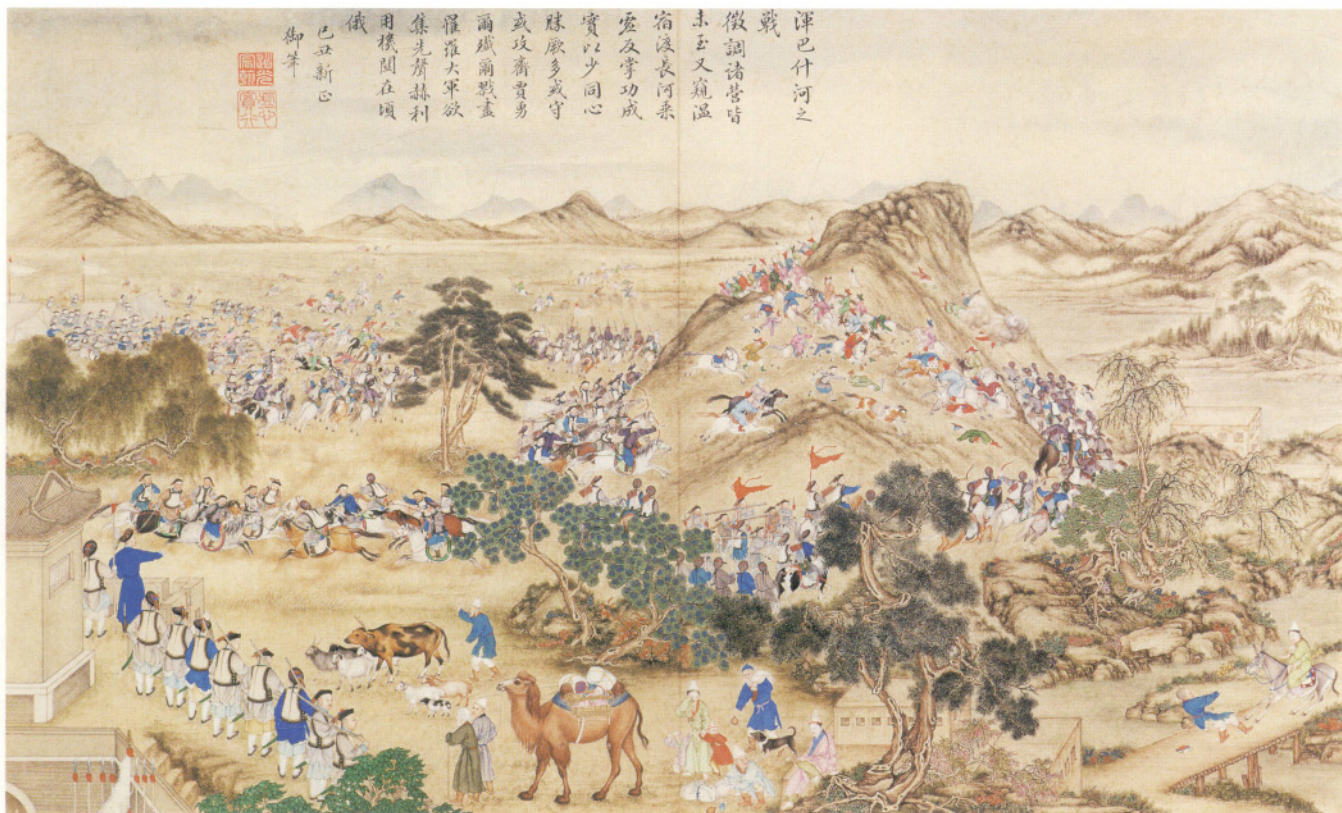 渾巴什河之
戰
徵調諸營皆
未至又窺溫
宿渡長河乘
虛反掌功成
實以少同心
勝厥多或守
或攻齊賈勇
爾殲爾戮盡
罹羅大軍欲
集先聲赫利
用機關在頃
俄
己丑新正
御筆
道光宸翰
虛心實行